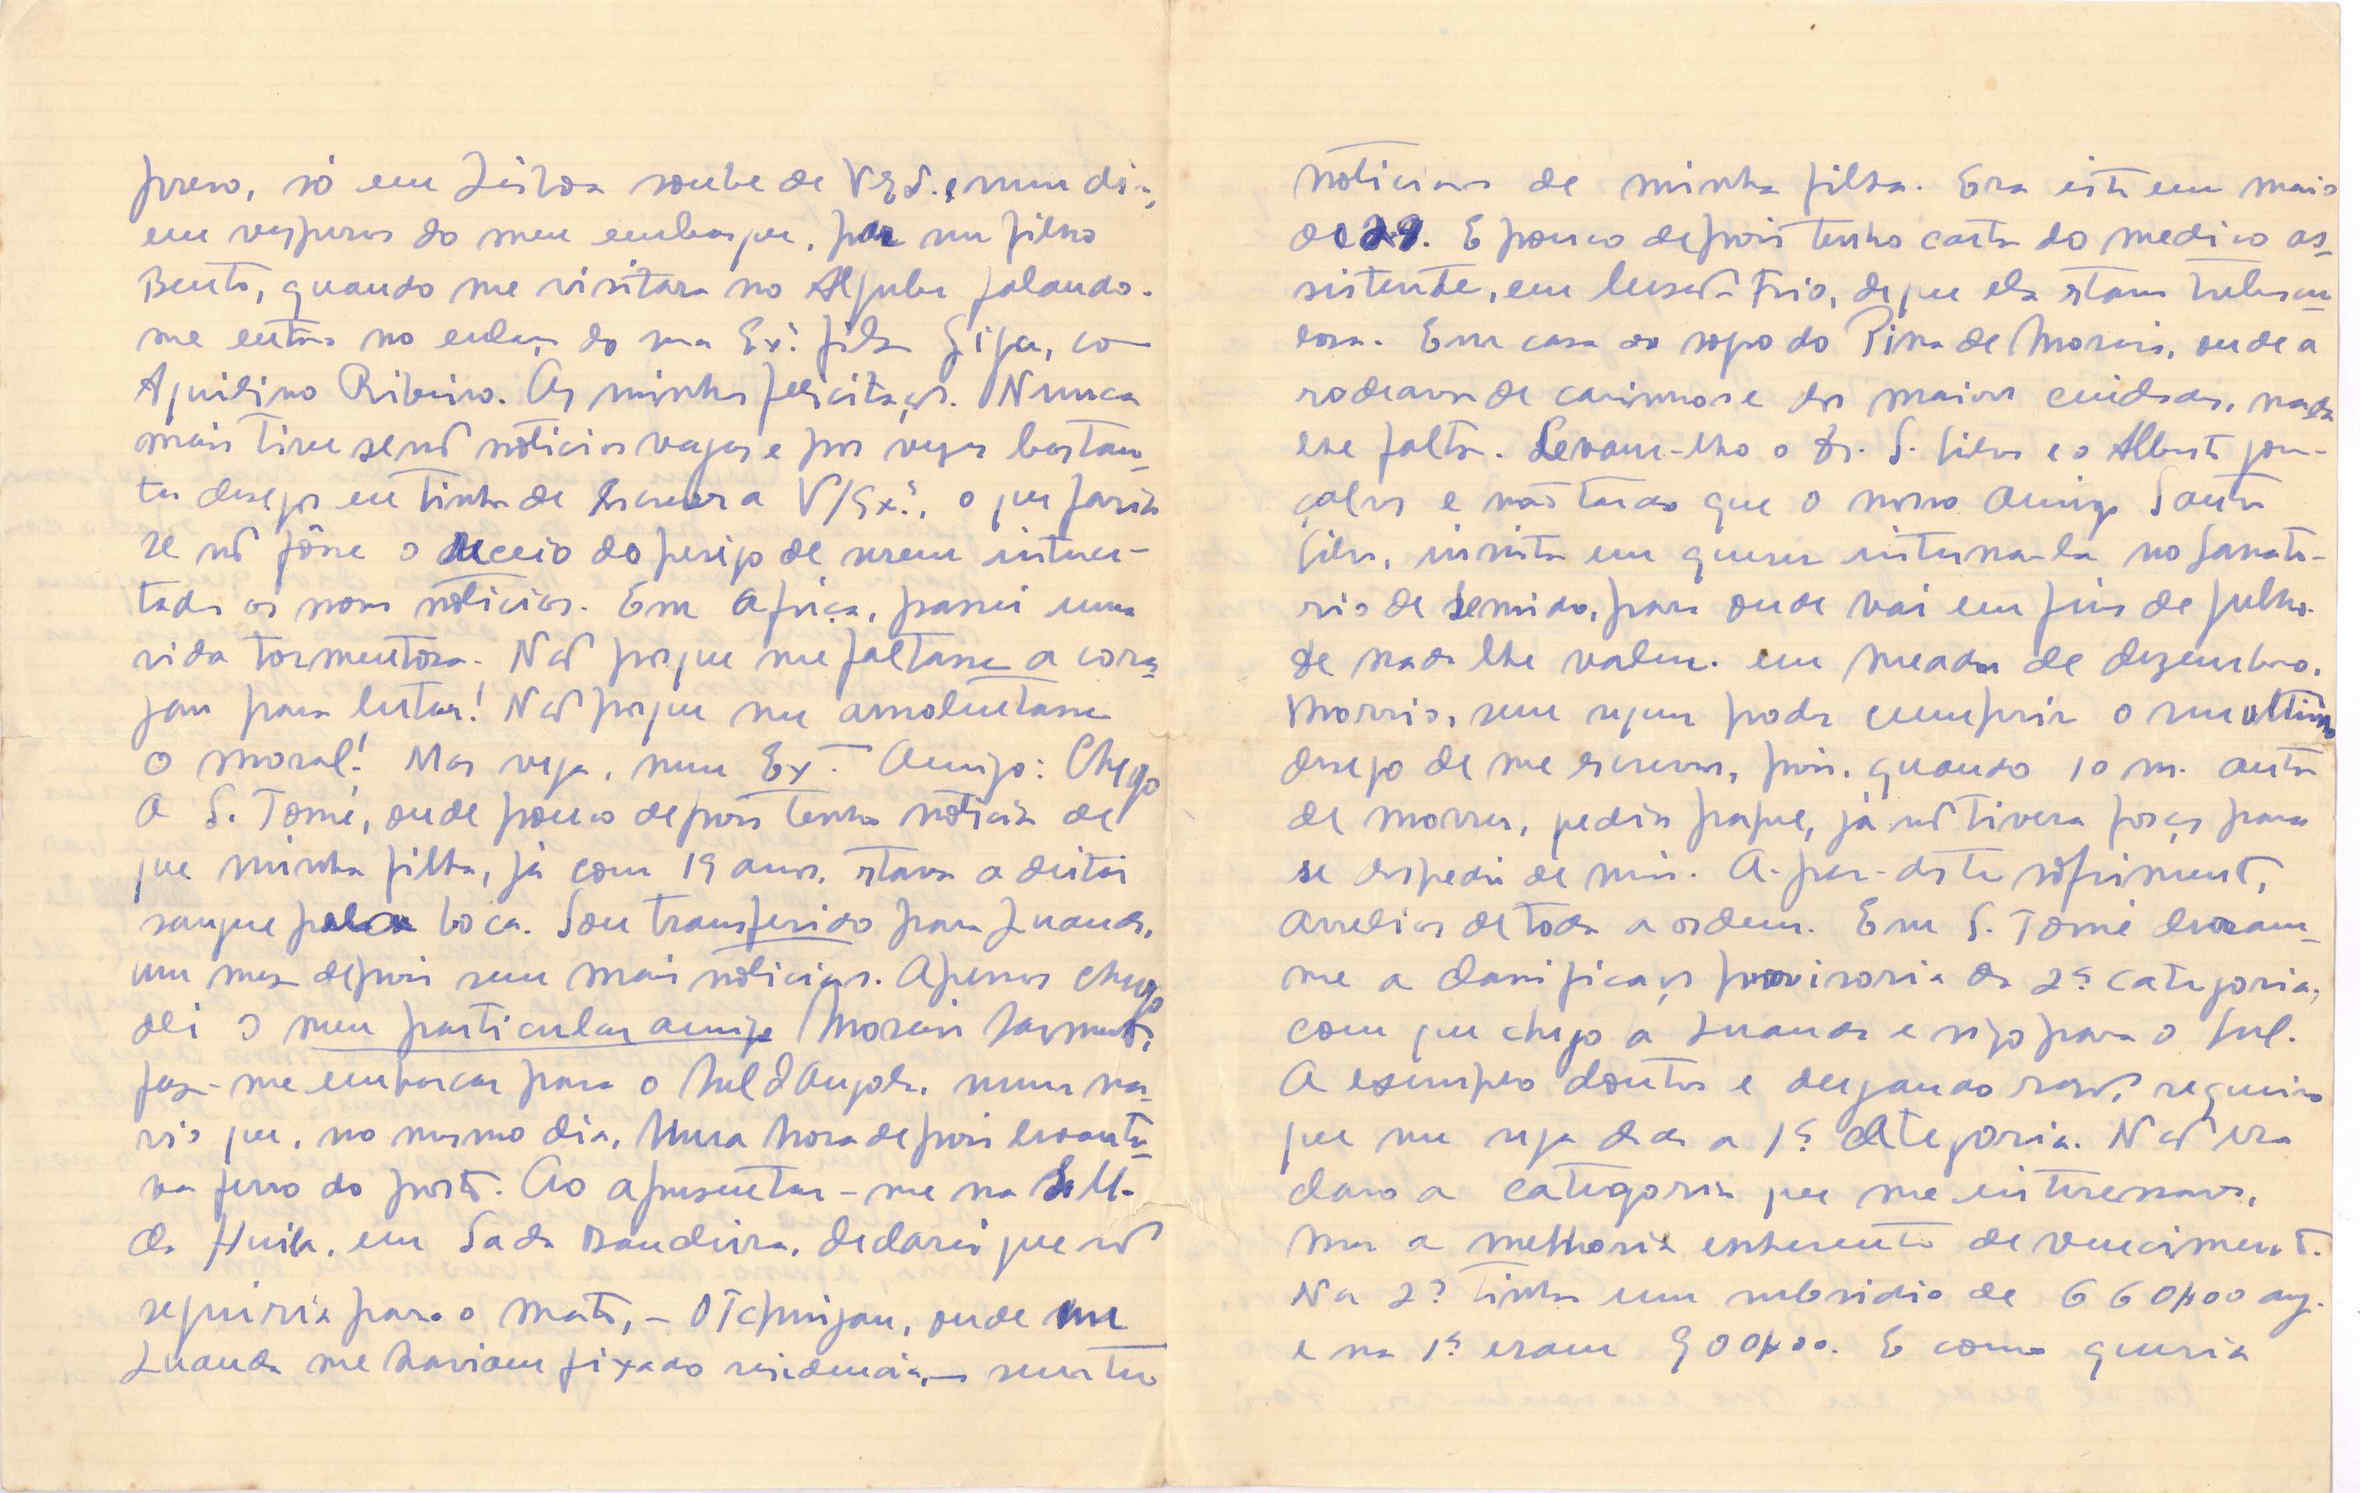 preso, só em Lisboa soube de V. Ex.ª, num dia,
em vesperas do meu embarque, por seu filho
Bento, quando me visitara no Aljube falando-
me então no enlace de sua Ex.ª filha Gija, com
Aquilino Ribeiro. As minhas felicitações. Nunca
mais tive senão noticias vagas e por vezes bastan-
tes desejos eu tinha de escrever a V/Ex.ª, o que faria
se não fôsse o receio do perigo de serem interce-
tadas as novas noticias. Em Africa, passei uma
vida tormentosa. Não porque me faltasse a cora-
gem para lutar! Não porque me amolentasse
o moral! Mas veja, meu Ex.º Amigo: Chego
a S. Tomé, onde pouco depois tenho noticia de
que minha filha, já com 19 anos, estava a deitar
sangue pela boca. Sou transferido para Luanda,
um mez depois sem mais noticias. Apenas chego
ali o meu particular amigo Morais Sarmento,
faz-me embarcar para o Sul d'Angola, num na-
vio que, no mesmo dia, uma hora depois levanta-
va ferro do porto. Ao apresentar-me na
da Huila, em Sá da Bandeira, declarei que não
seguiria para o mato, - Otchinjau, onde em
Luanda me haviam fixado residencia, - sem ter
noticias de minha filha. Era isto em maio
de 29. E pouco depois tenho carta do medico as-
sistente, em Mesão Frio, de que ela estava tubercu-
losa. Em casa do sogro do Pina de Morais, onde a
rodeavam de carinhos e dos maiores cuidados, nada
lhe falta. Levam-lho o Dr. S. Silva e o Alberto Gon-
çalves e não tarda que o nosso amigo Santos
Silva, insista em querer interna-la no Sanato-
rio de Semide, para onde vai em fins de Julho.
De nada lhe valeu. em meados de dezembro,
morria, sem sequer poder cumprir o seu ultimo
desejo de me escrever, pois, quando 10 m. antes
de morrer, pedira papel, já não tivera forças para
se despedir de mim. A-par-deste sofrimento,
arrelias de toda a ordem. Em S. Tomé deram-
me a classificação provisoria da 2ª categoria,
com que chego a Luanda e sigo para o Sul.
A exemplo doutros e alegando razões, requeiro
que me seja dada a 1ª categoria. Não era
claro a categoria que me interessava,
mas a melhoria inherente de vencimento.
Na 2ª tinha um subsidio de 660$00 ang.
e na 1ª eram 900$00. E como queria